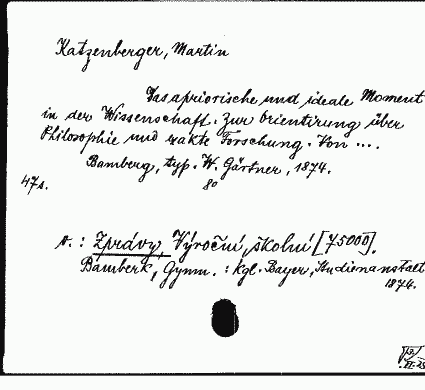 Katzenberger, Martin
Das apriorische und ideale Moment
in der Wissenschaft. Zur Orientirung über
Philosophie und exakte Forschung. Von ....
Bamberg, typ. W. Gärtner, 1874.
47s. 8°
v.: Zprávy, Výroční, školní [75000].
Bamberk, Gymn.: Kgl. Bayer, Studienanstalt
1874.